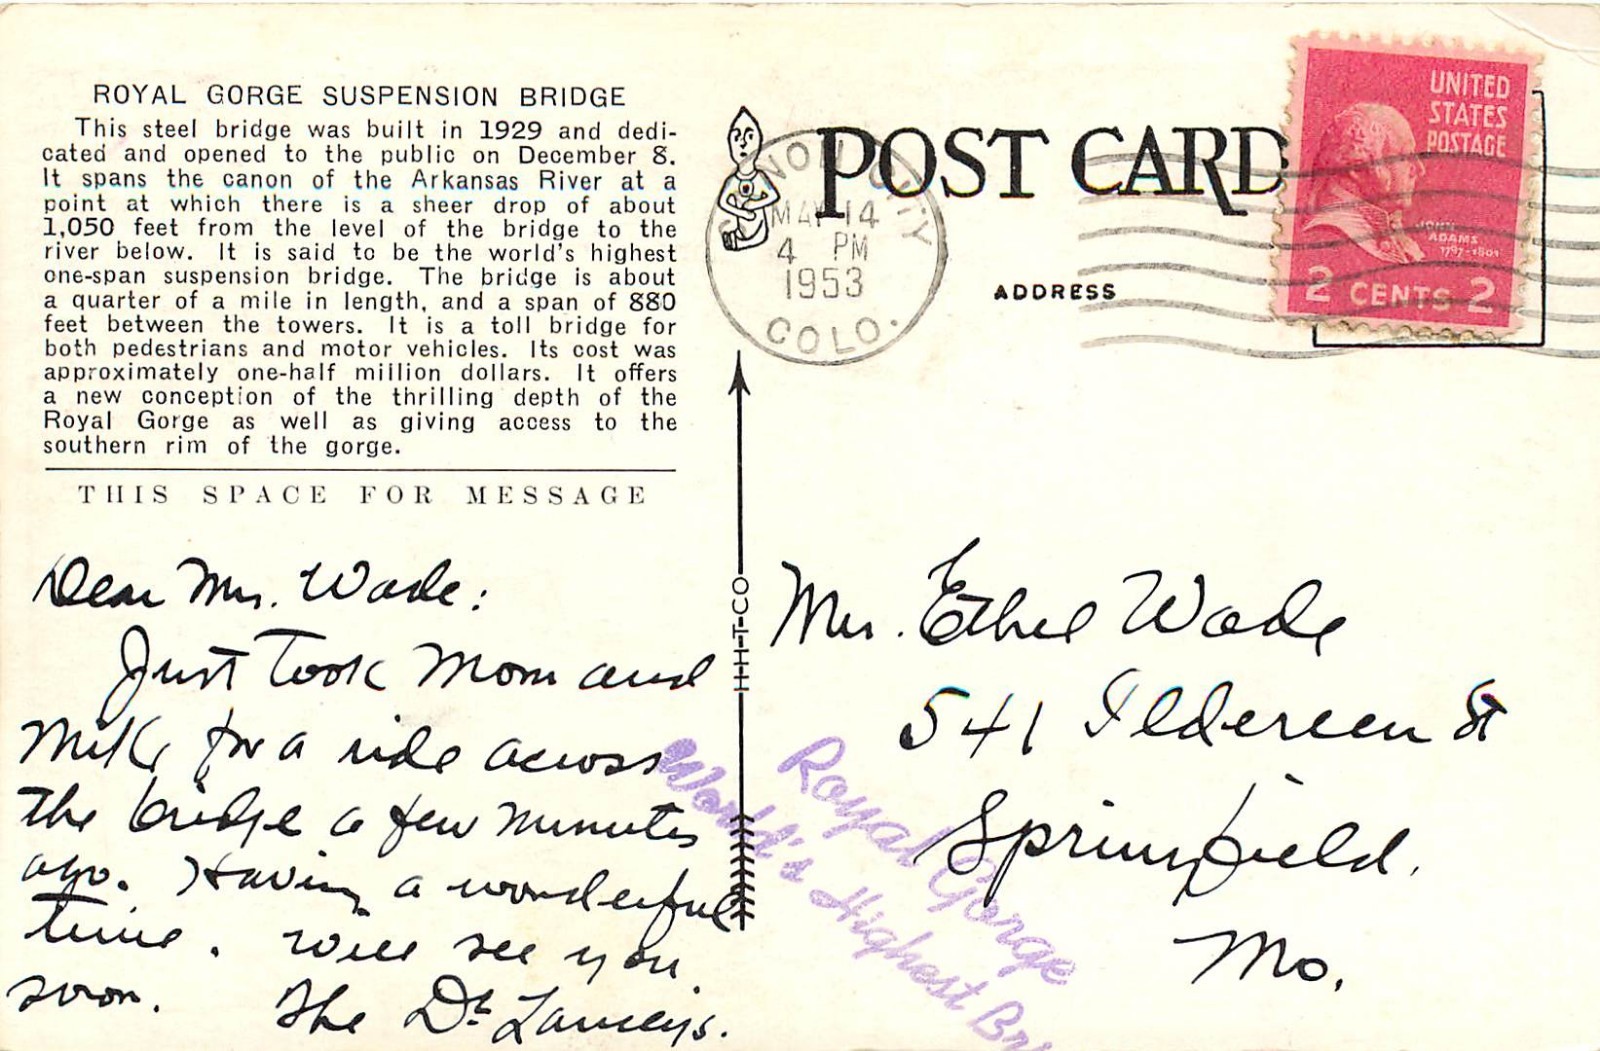 ROYAL GORGE SUSPENSION BRIDGE
This steel bridge was built in 1929 and dedi-
cated and opened to the public on December 8.
It spans the canon of the Arkansas River at a
point at which there is a sheer drop of about
1,050 feet from the level of the bridge to the
river below. It is said to be the world's highest
one-span suspension bridge. The bridge is about
a quarter of a mile in length, and a span of 880
feet between the towers. It is a toll bridge for
both pedestrians and motor vehicles. Its cost was
approximately one-half million dollars. It offers
a new conception of the thrilling depth of the
Royal Gorge as well as giving access to the
southern rim of the gorge.
THIS SPACE FOR MESSAGE
Dear Mrs. Wade:
Just took Mom and
Mike for a ride across
the bridge a few minutes
ago. Having a wonderful
time. Will see you
soon. The
H-T-CO
POST CARD
ADDRESS
CANON CITY
MAY 14
4 PM
1953
COLO.
UNITED
STATES
POSTAGE
JOHN
ADAMS
1797-1801
2 CENTS 2
Mrs. Ethel Wade
541 St
Springfield.
Mo.
Royal Gorge
World's Highest Bri